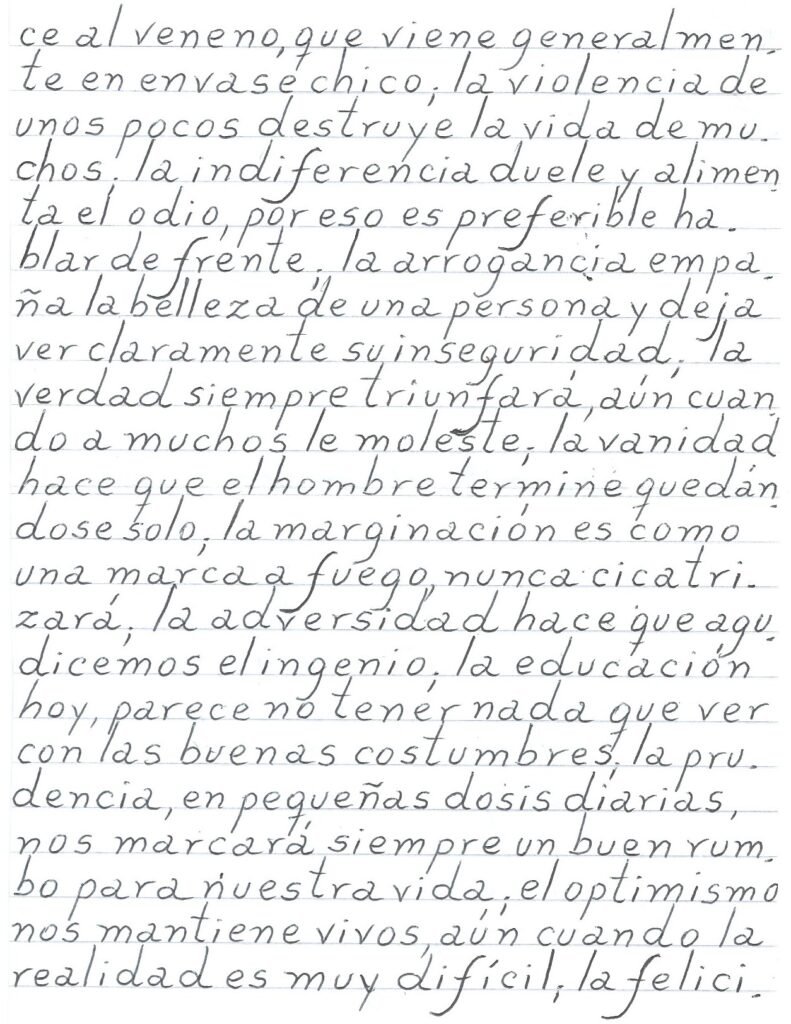 ce al veneno, que viene generalmen.
te en envase chico; la violencia de
unos pocos destruye la vida de mu.
chos; la indiferencia duele y alimen
ta el odio, por eso es preferible ha.
blar de frente; la arrogancia empa.
ña la belleza de una persona y deja
ver claramente su inseguridad; la
verdad siempre triunfará, aún cuan
do a muchos le moleste; la vanidad
hace que el hombre termine quedán
dose solo; la marginación es como
una marca a fuego, nunca cicatri.
zará; la adversidad hace que agu.
dicemos el ingenio; la educación
hoy, parece no tener nada que ver
con las buenas costumbres; la pru.
dencia, en pequeñas dosis diarias,
nos marcará siempre un buen rum.
bo para nuestra vida; el optimismo
nos mantiene vivos, aún cuando la
realidad es muy difícil; la felici.